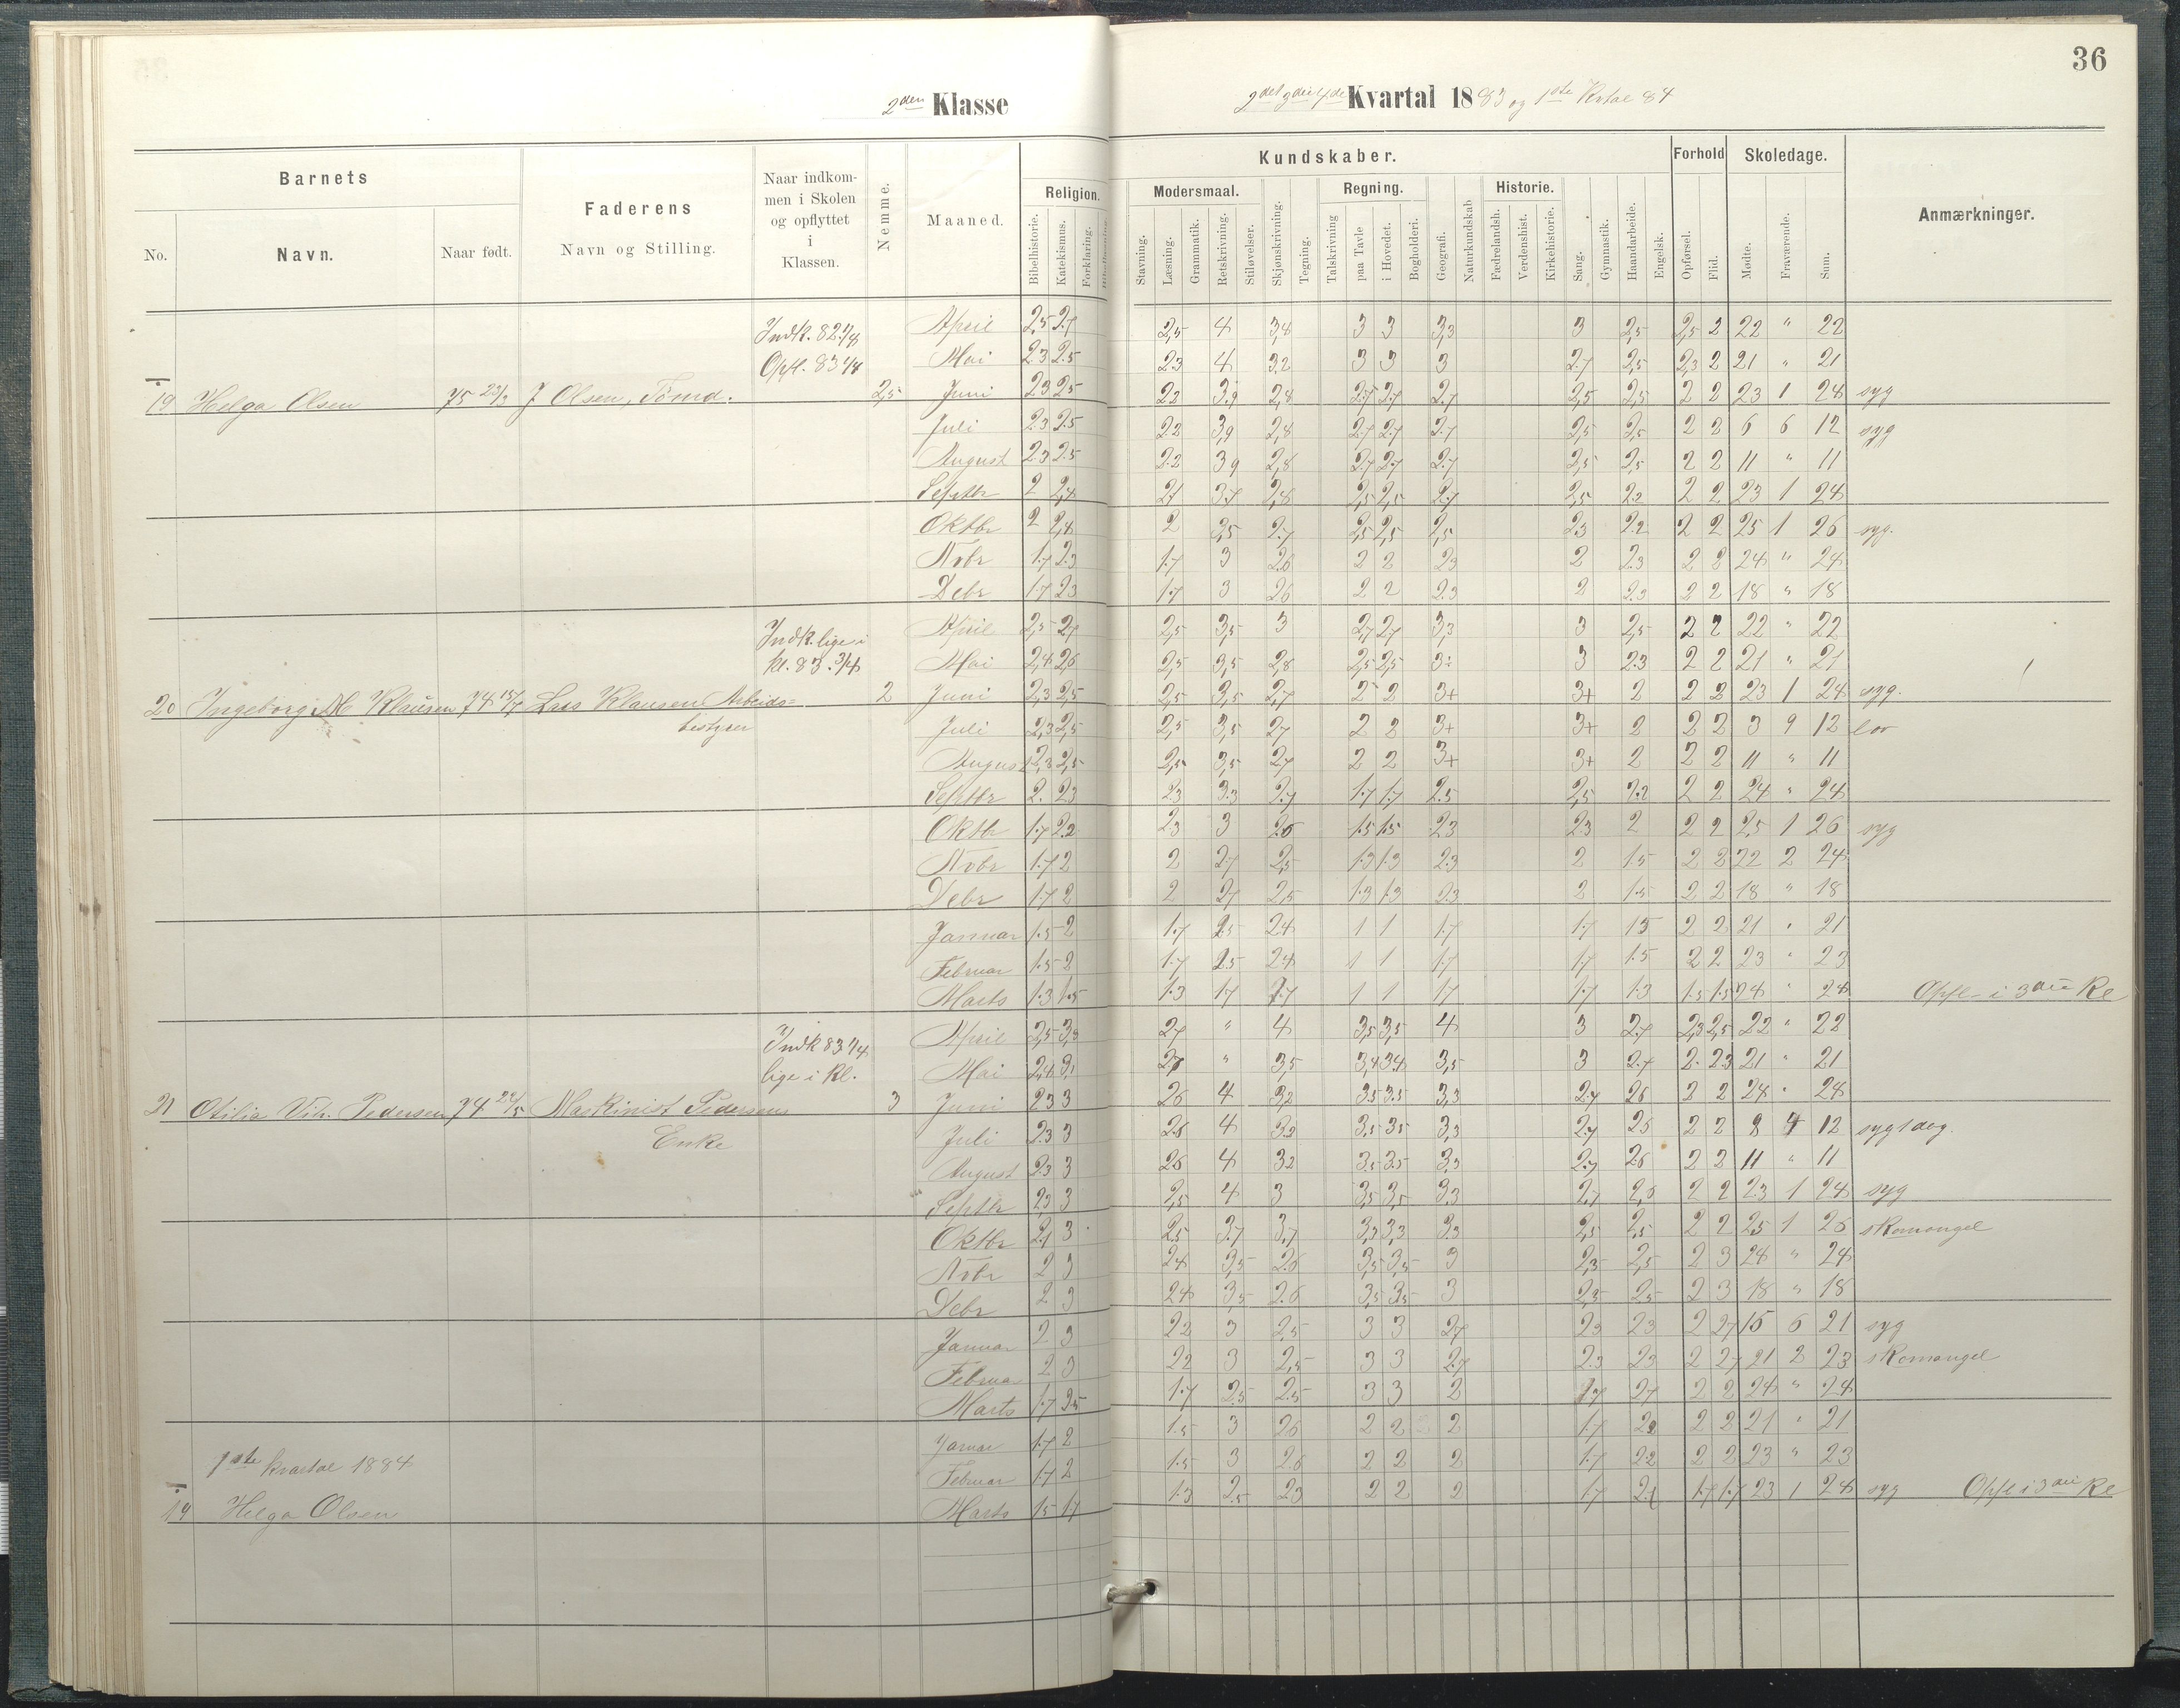 36
2den Klasse
2det 3die 4de Kvartal 1883 og 1ste Kvtal 84
Barnets
Faderens
Naar indkommen i Skolen og opflyttet i Klassen.
Nemme.
Maaned.
Religion.
Kundskaber.
Forhold
Skoledage.
Anmærkninger.
No.
Navn.
Naar født.
Navn og Stilling.
Bibelhistorie.
Katekismus.
Forklaring.
Modersmaal.
Regning.
Historie.
Stavning.
Læsning.
Grammatik.
Retskrivning.
Stiløvelser.
Skjønskrivning.
Tegning.
Talskrivning
paa Tavle
i Hovedet.
Bogholderi.
Geografi.
Naturkundskab
Fædrelandsh.
Verdenshist.
Kirkehistorie.
Sang.
Gymnastik.
Haandarbeide.
Engelsk.
Opførsel.
Flid.
Møde.
Fraværende.
Sum.
Indk. 82 1/8
Opfl. 83 1/4
April 2,5 2.7 2,5 4 3,4 3 3 3,3 3 2,5 2,5 2 22 " 22
Mai 2.3 2.5 2.3 4 3.2 3 3 3 2.7 2,5 2,3 2 21 " 21
19 Helga Olsen 75 23/3 J Olsen, Tømd. 2,5 Juni 2.3 2.5 2.2 3.9 2,8 2.7 2.7 2.7 2,5 2,5 2 2 23 1 24 syg
Juli 2.3 2.5 2.2 3,9 2,8 2.7 2.7 2.7 2,5 2,5 2 2 6 6 12 syg
August 2.3 2.5 2.2 3,9 2,8 2.7 2.7 2.7 2,5 2,5 2 2 11 " 11
Septbr 2 2,4 2.1 3.7 2,8 2,5 2,5 2.7 2,5 2.2 2 2 23 1 24
Oktbr 2 2,4 2 3,5 2.7 2,5 2,5 2,5 2.3 2.2 2 2 25 1 26 syg.
Nobr 1.7 2.3 1.7 3 2.6 2 2 2.3 2 2.3 2 2 24 " 24
Debr 1.7 2.3 1.7 3 2.6 2 2 2.3 2 2.3 2 2 18 " 18
Indk. lige i
Kl. 83. 3/4
April 2,5 2.7 2,5 3,5 3 2,7 2.7 3,3 3 2,5 2 2 22 " 22
Mai 2,4 2,6 2,5 3,5 2,8 2,5 2,5 3÷ 3 2.3 2 2 21 " 21
20 Ingeborg M Klausen 74 15/7 Lars Klausen Arbeids= 2 Juni 2,3 2,5 2,5 3,5 2,7 2 2 3+ 3+ 2 2 2 23 1 24 syg.
bestyrer Juli 2,3 2,5 2,5 3,5 2,7 2 2 3+ 3+ 2 2 2 3 9 12 lov
August 2,3 2,5 2,5 3,5 2,7 2 2 3+ 3+ 2 2 2 11 " 11
Septbr 2. 2.3 2.3 3.3 2.7 1.7 1.7 2.5 2,5 2.2 2 2 24 " 24
Oktb 1.7 2.2 2.3 3 2.6 1.5 1.5 2.3 2.3 2 2 2 25 1 26 syg
Nobr 1.7 2 2 2.7 2,5 1.3 1.3 2.3 2 1.5 2 2 22 2 24
Debr 1.7 2 2 2.7 2.5 1.3 1.3 2.3 2 1.5 2 2 18 " 18
Januar 1.5 2 1.7 2.5 2.4 1 1 1.7 1.7 1.5 2 2 21 " 21
Februar 1.5 2 1.7 2.5 2.4 1 1 1.7 1.7 1.5 2 2 23 " 23
Marts 1.3 1.5 1.3 1.7 1.7 1 1 1.7 1.7 1.3 1.5 1.5 24 " 24 Opfl i 3die Kl
Indk 83 1/4
lige i Kl.
April 2,5 3,3 2.7 " 4 3,5 3,5 4 3 2.7 2,3 2,5 22 " 22
Mai 2,4 3,1 2.7 " 3,5 3,4 3.4 3,5 3 2.7 2. 2.3 21 " 21
21 Otilia Vilh. Pedersen 74 22/5 Maskinist Pedersens 3 Juni 2.3 3 2.6 4 3,2 3.5 3.5 3,3 2.7 2.6 2 2 24 " 24
Enke Juli 2.3 3 2.6 4 3.2 3.5 3.5 3,3 2.7 2.6 2 2 8 4 12 syg 1 dag.
August 2.3 3 2.6 4 3.2 3.5 3.5 3.3 2.7 2.6 2 2 11 " 11
Septbr 2,3 3 2,5 4 3 3,5 3,5 3.3 2.7 2,5 2 2 23 1 24 syg
Oktbr 2.1 3 2.5 3.7 3,7 3,3 3,3 3.3 2,5 2,5 2 2 25 1 26 skomangel
Nobr 2 3 2.4 3,5 2.6 3,5 3,5 3 2,5 2,5 2 3 24 " 24
Debr 2 3 2.4 3,5 2.6 3,5 3.5 3 2,5 2.5 2 3 18 " 18
Januar 2 3 2.2 3 2,5 3 3 2.7 2.3 2.3 2 2.7 15 6 21 syg
Februar 2 3 2.2 3 2,5 3 3 2.7 2.3 2.3 2 2.7 21 2 23 skomangel
Marts 1.7 2.5 1.7 2.5 2.5 3 3 2 1.7 2.7 2 2 24 " 24
Januar 1.7 2 1.5 3 2.6 2 2 2 1.7 2.2 2 2 21 " 21
1ste kvartal 1884 Februar 1.7 2 1.5 3 2.6 2 2 2 1.7 2.2 2 2 23 " 23
19 Helga Olsen Marts 1.5 1.7 1.3 2.5 2.3 2 2 2 1.7 2.1 1.7 1.7 23 1 24 syg Opfl i 3die Kl